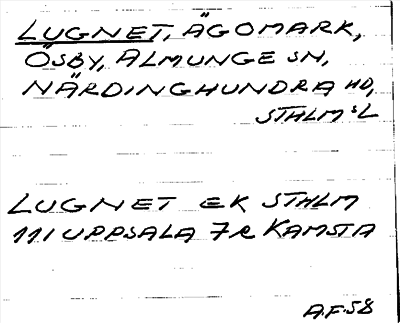 LUGNET, ÄGOMARK,
ÖSBY, ALMUNGE SN,
NÄRDINGHUNDRA HD,
STHLM SL
LUGNET EK STHLM
111 UPPSALA 7R KAMSTA
A.F.58